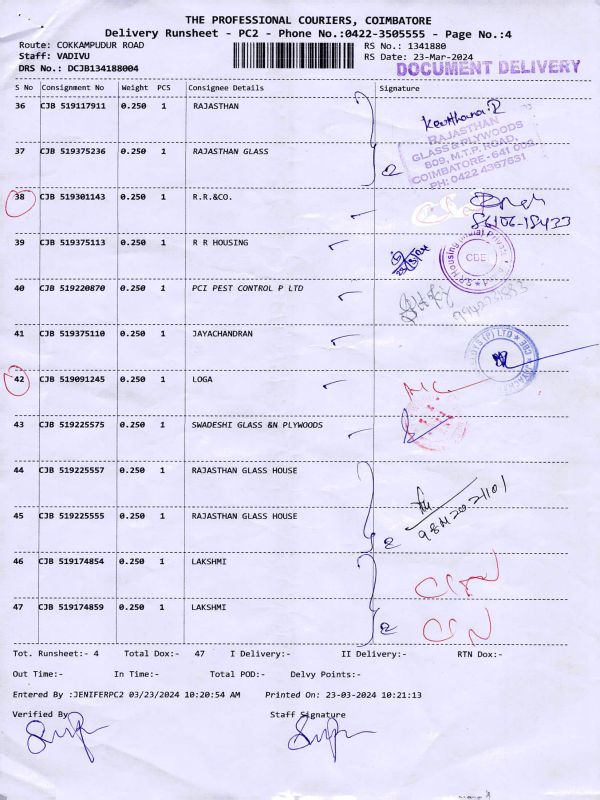 THE PROFESSIONAL COURIERS, COIMBATORE
Delivery Runsheet - PC2 - Phone No.:0422-3505555 - Page No.:4
Route: COKKAMPUDUR ROAD
RS No.: 1341880
Staff: VADIVU
RS Date: 23-Mar-2024
DRS No.: DCJB134188004
DOCUMENT DELIVERY
S No Consignment No Weight PCS Consignee Details Signature
36 CJB 519117911 0.250 1 RAJASTHAN
Keerthana.R
RAJASTHAN
GLASS & PLYWOODS
809, M.T.P. ROAD,
COIMBATORE - 641 003
PH: 0422 4367631
37 CJB 519375236 0.250 1 RAJASTHAN GLASS
2
38 CJB 519301143 0.250 1 R.R.&CO.
86106-18433
39 CJB 519375113 0.250 1 R R HOUSING
CBE
40 CJB 519220870 0.250 1 PCI PEST CONTROL P LTD
41 CJB 519375110 0.250 1 JAYACHANDRAN
42 CJB 519091245 0.250 1 LOGA
43 CJB 519225575 0.250 1 SWADESHI GLASS &N PLYWOODS
44 CJB 519225557 0.250 1 RAJASTHAN GLASS HOUSE
98420-21101
45 CJB 519225555 0.250 1 RAJASTHAN GLASS HOUSE
2
46 CJB 519174854 0.250 1 LAKSHMI
47 CJB 519174859 0.250 1 LAKSHMI
2
Tot. Runsheet:- 4 Total Dox:- 47 I Delivery:- II Delivery:- RTN Dox:-
Out Time:- In Time:- Total POD:- Delvy Points:-
Entered By :JENIFERPC2 03/23/2024 10:20:54 AM Printed On: 23-03-2024 10:21:13
Verified By Staff Signature